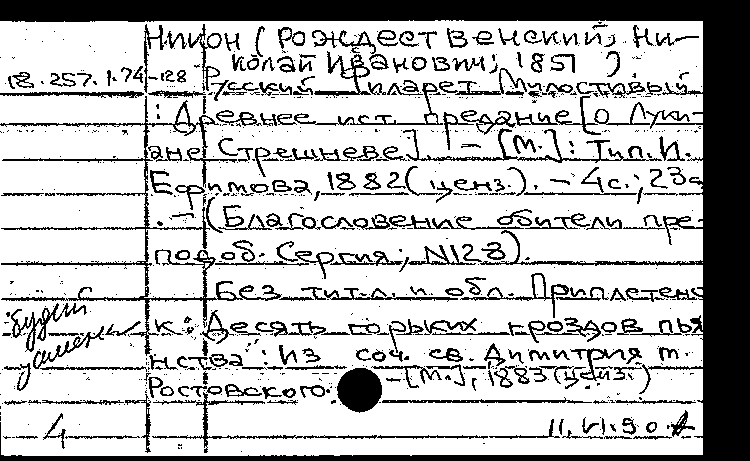 Никон (Рождественский, Ни-
колай Иванович; 1851 )
18.257.1.74-128 Русский Филарет Милостивый
: Древнее ист. предание [о Луки-
ане Стрешневе]. - [М.]: Тип. И.
Ефимова, 1882 (ценз.). - 4 с.; 23 с
. - (Благословение обители пре-
подоб. Сергия; N 128).
Без тит.л. и обл. Приплетено
будет
к: Десять горьких гроздов пья
нства: Из соч. св. Димитрия м.
Ростовского. - [М.], 1883 (ценз.)
4
11.VI.90